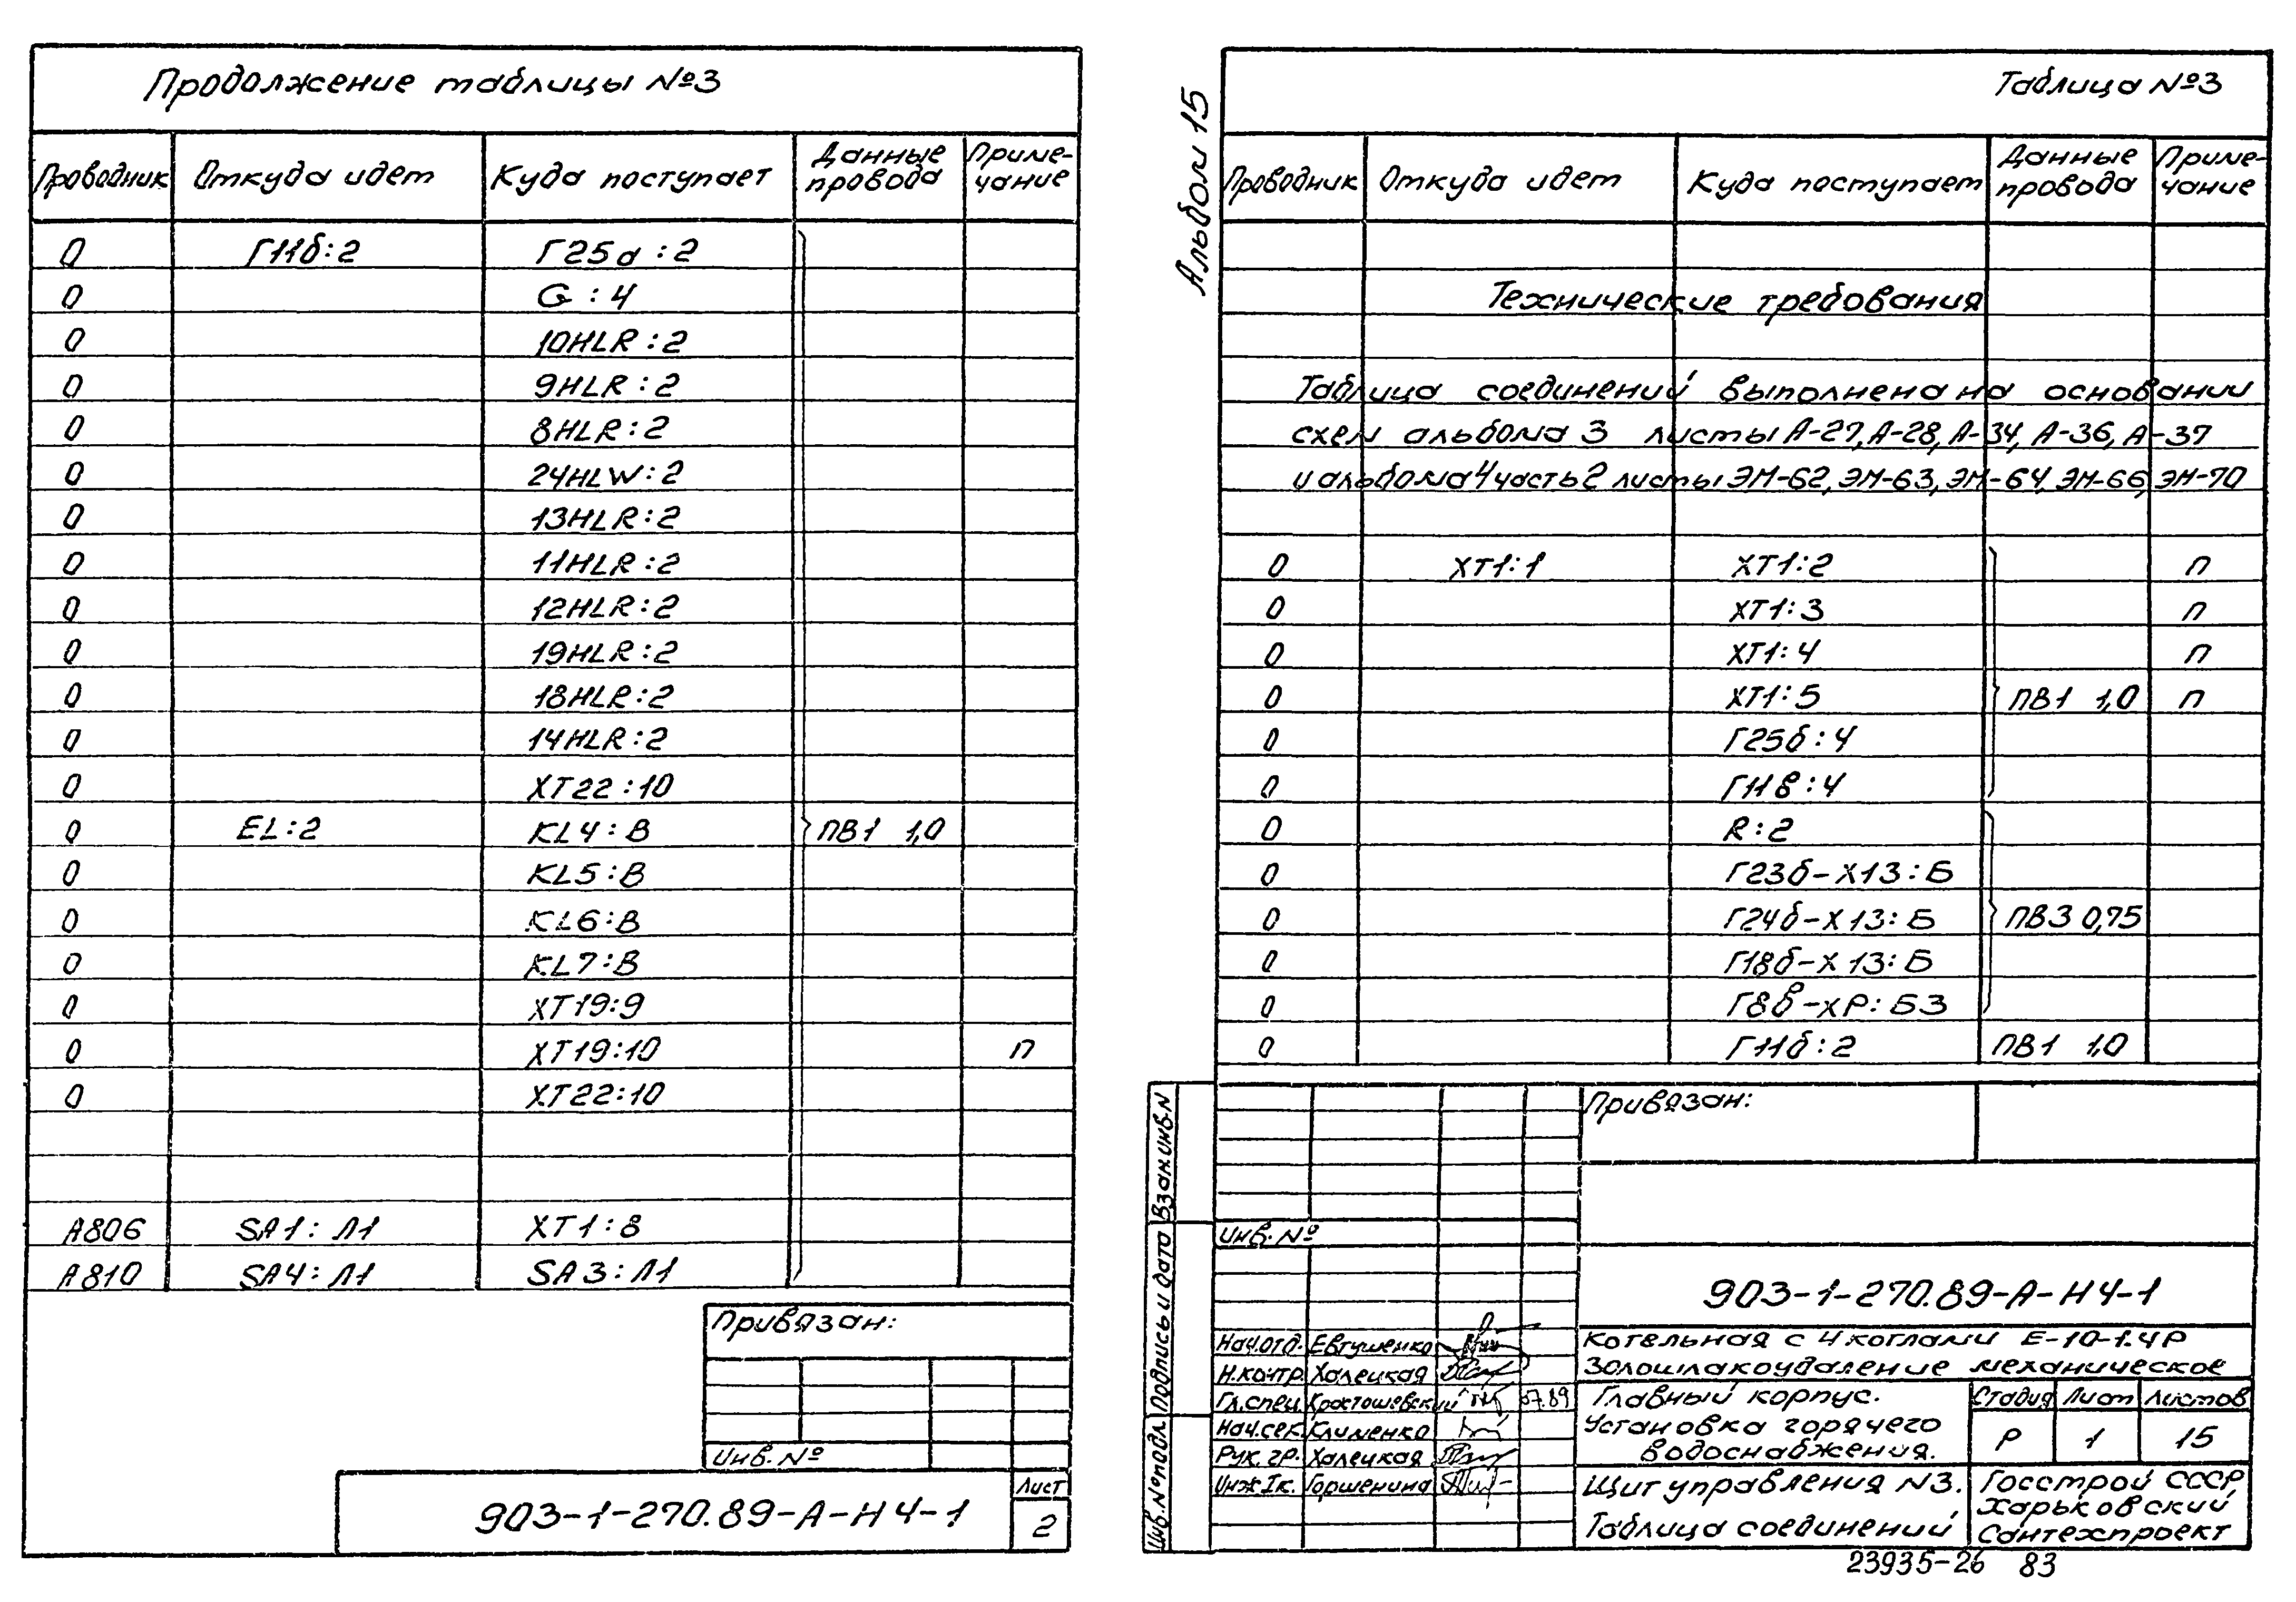 Продолжение таблицы №3
Проводник Откуда идет Куда поступает Данные провода Приме-чание
0 Г11б:2 Г25а:2
0 G:4
0 10HLR:2
0 9HLR:2
0 8HLR:2
0 24HLW:2
0 13HLR:2
0 11HLR:2
0 12HLR:2
0 19HLR:2
0 18HLR:2
0 14HLR:2
0 XT22:10
0 EL:2 KL4:B ПВ1 1,0
0 KL5:B
0 KL6:B
0 KL7:B
0 XT19:9
0 XT19:10 п
0 XT22:10
А806 SA1:Л1 XT1:8
А810 SA4:Л1 SA3:Л1
Привязан:
Инв.№
903-1-270.89-А-Н4-1
Лист
2
Альбом 15
Таблица №3
Проводник Откуда идет Куда поступает Данные провода Приме-чание
Технические требования
Таблица соединений выполнена на основании
схем альбома 3 листы А-27, А-28, А-34, А-36, А-37
и альбома 4 часть 2 листы ЭМ-62, ЭМ-63, ЭМ-64, ЭМ-66, ЭМ-70
0 XT1:1 XT1:2 п
0 XT1:3 п
0 XT1:4 п
0 XT1:5 ПВ1 1,0 п
0 Г25б:4
0 Г11в:4
0 R:2
0 Г23б-Х13:Б
0 Г24б-Х13:Б ПВ3 0,75
0 Г18б-Х13:Б
0 Г8в-ХР:Б3
0 Г11б:2 ПВ1 1,0
Привязан:
Инв.№
903-1-270.89-А-Н4-1
Нач.отд. Евтушенко
Н.контр. Халецкая
Гл.спец. Кростошевский 07.89
Нач.сек. Клименко
Рук.гр. Халецкая
Инж.Iк. Горшенина
Котельная с 4 котлами Е-10-1.4Р
Золошлакоудаление механическое
Главный корпус.
Установка горячего
водоснабжения.
Стадия Лист Листов
Р 1 15
Щит управления N3.
Таблица соединений
Госстрой СССР,
Харьковский
Сантехпроект
Инв.№подл. Подпись и дата Взам.инв.N
23935-26 83